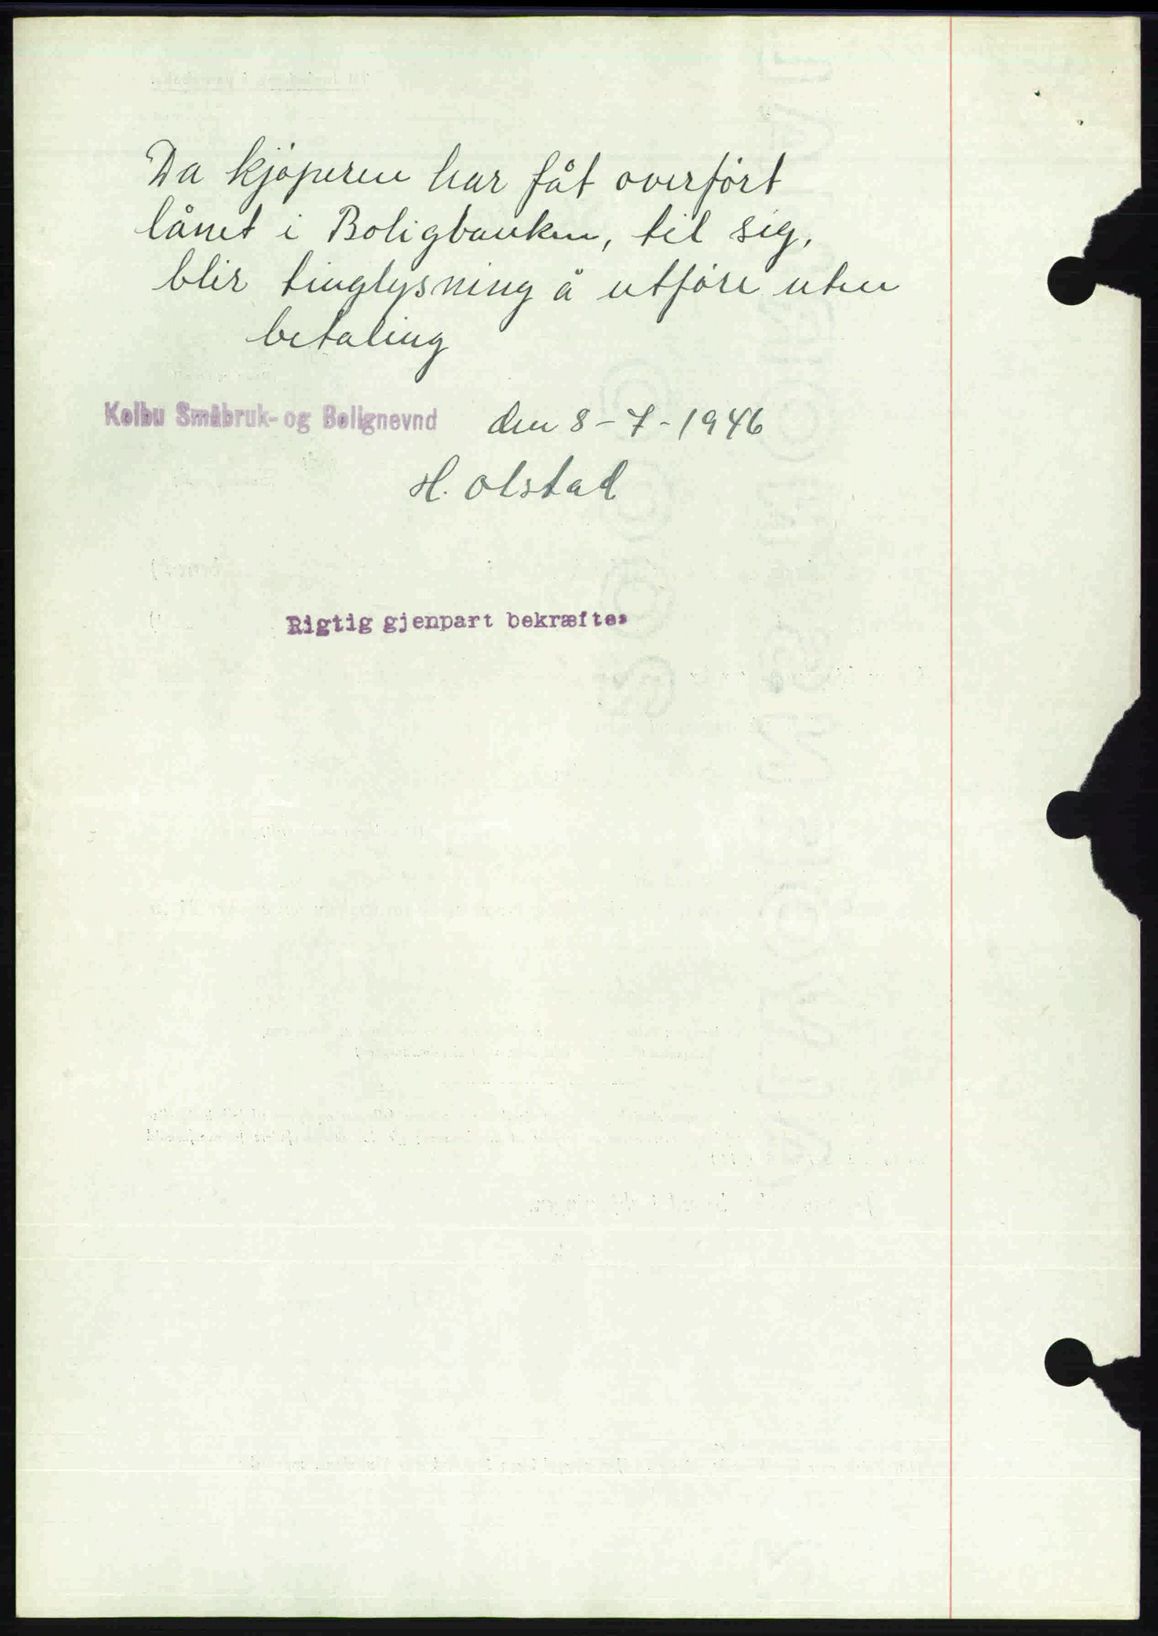 Da kjøperen har fåt overført
lånet i Boligbanken, til sig,
blir tinglysning å utføre uten
betaling
Kolbu Småbruk- og Bolignevnd den 8-7-1946
H. Olstad
Rigtig gjenpart bekræftes